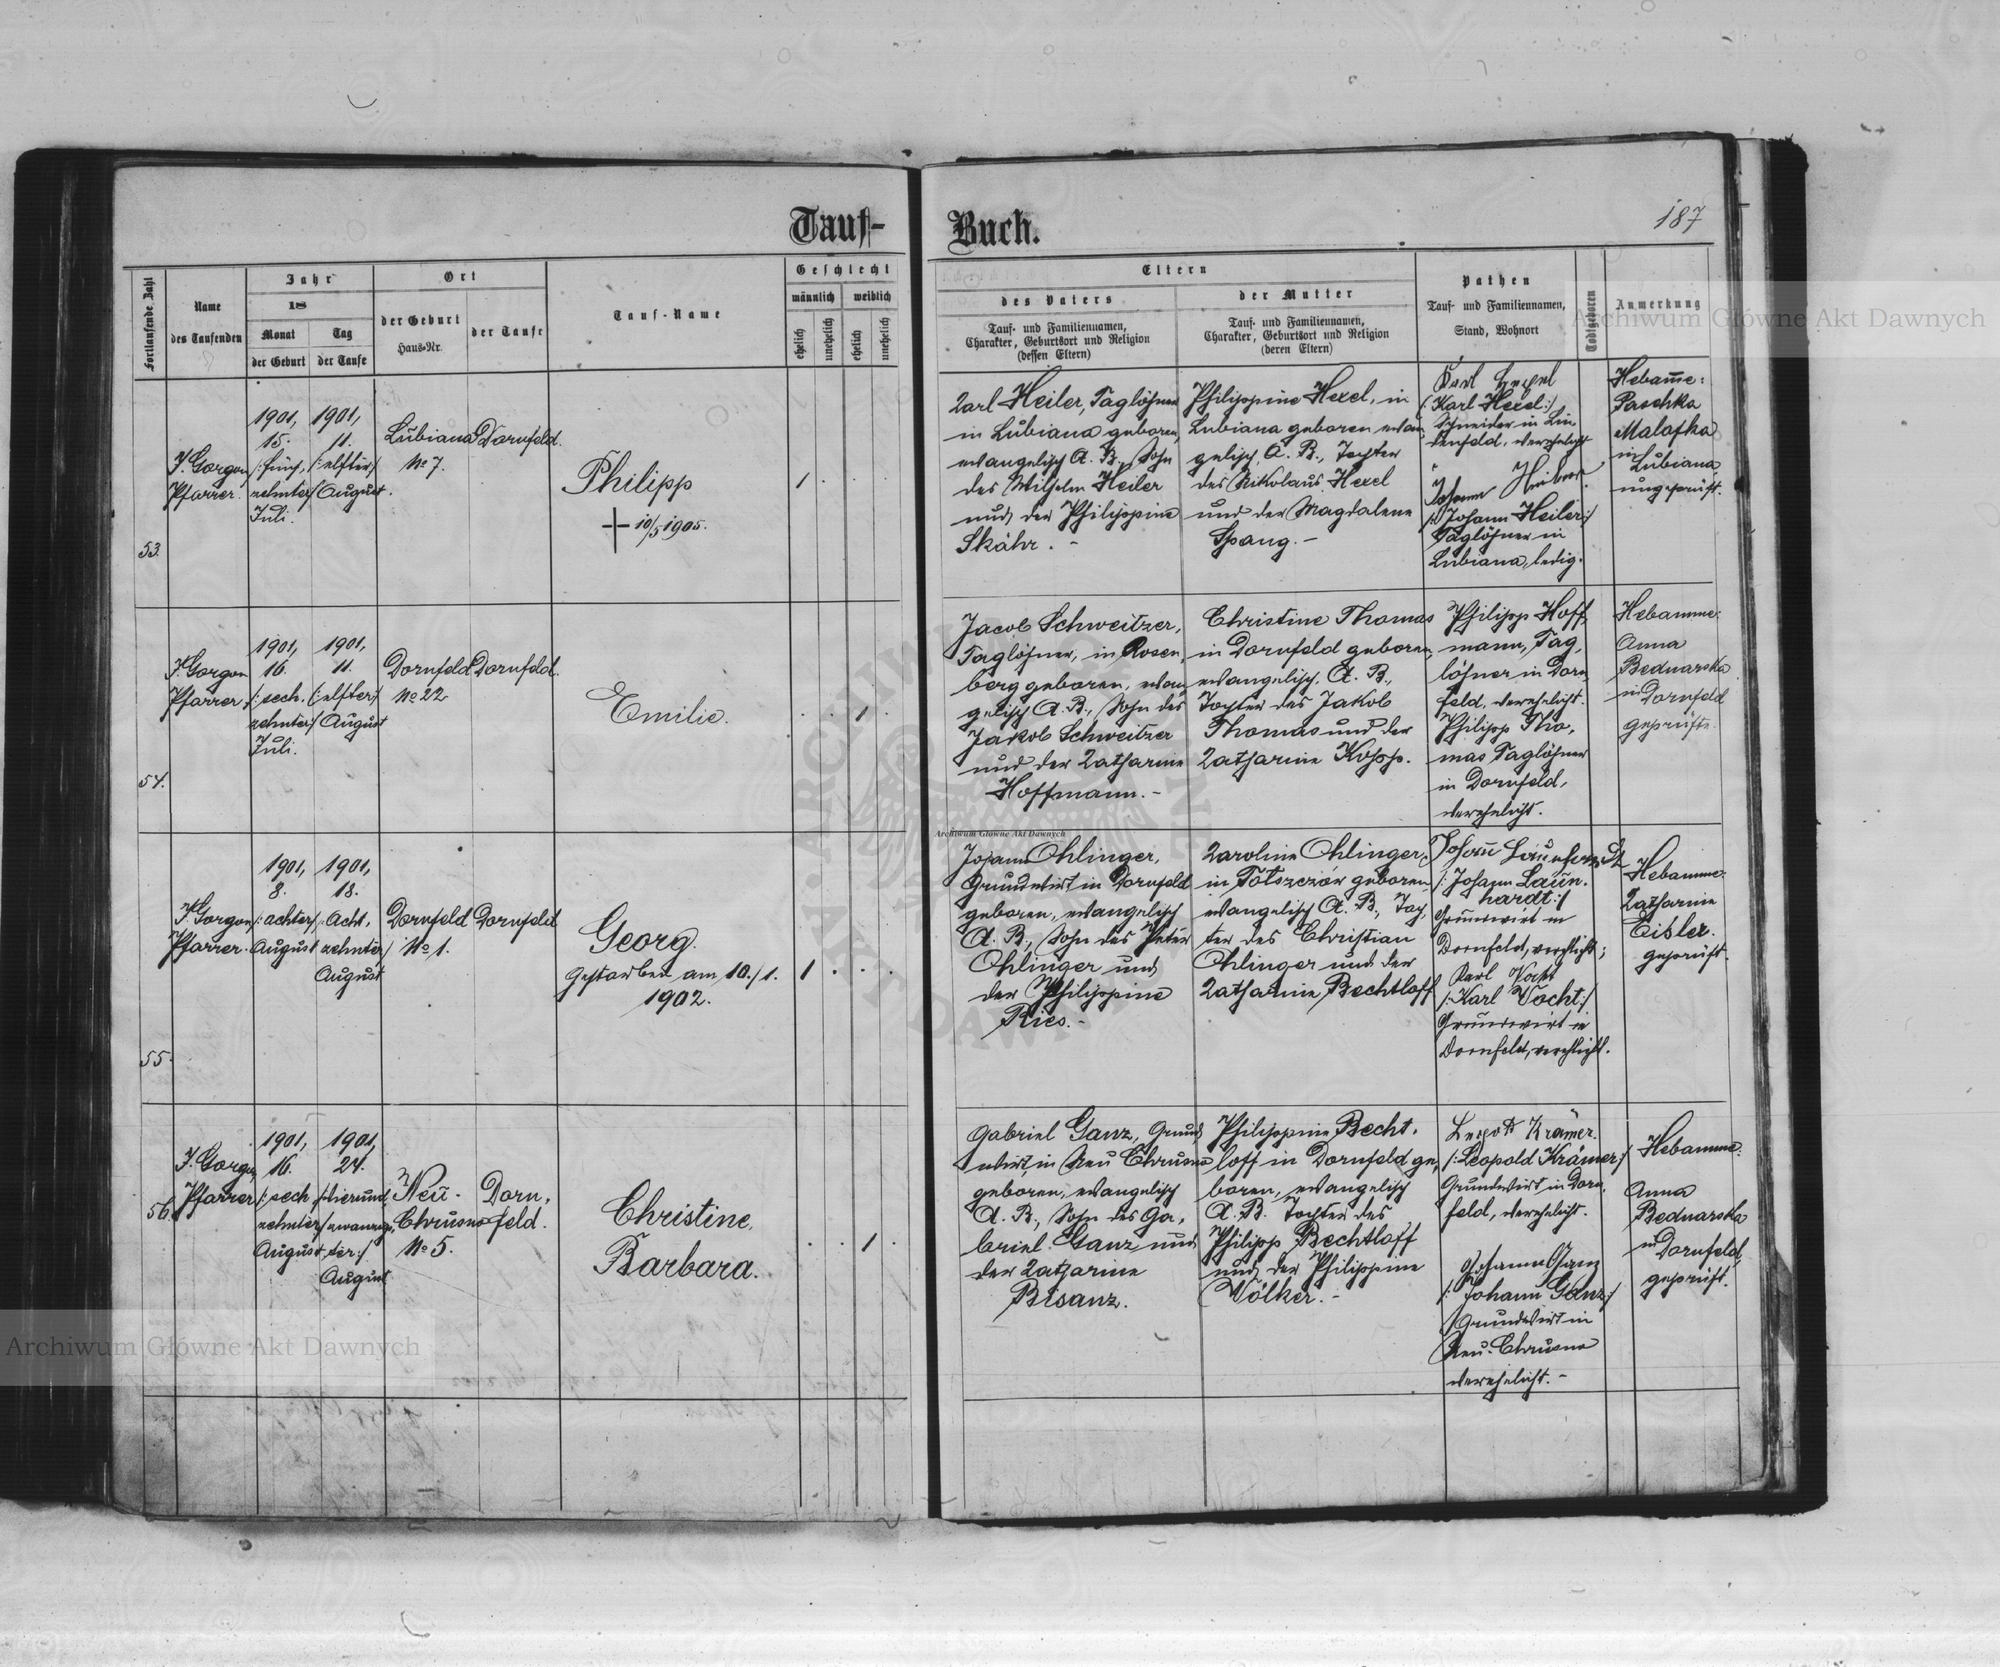 Tauf-
Buch.
187
Fortlaufende Zahl
Name
des Taufenden
Jahr
18
Monat
der Geburt
Tag
der Taufe
Ort
der Geburt
Haus-Nr.
der Taufe
Tauf-Name
Geschlecht
männlich
weiblich
ehelich
unehelich
ehelich
unehelich
Eltern
des Vaters
Tauf- und Familiennamen,
Charakter, Geburtsort und Religion
(dessen Eltern)
der Mutter
Tauf- und Familiennamen,
Charakter, Geburtsort und Religion
(deren Eltern)
Pathen
Tauf- und Familiennamen,
Stand, Wohnort
Todtgeboren
Anmerkung
Archiwum Główne Akt Dawnych
53.
J. Gorgon
Pfarrer.
1901,
15.
/:fünf,
zehnter/
Juli.
1901,
11.
/:elfter/
August.
Lubiana
No 7.
Dornfeld.
Philipp
+ 10/5 1905.
1
Karl Heiler, Taglöhner
in Lubiana geboren,
evangelisch A. B., Sohn
des Wilhelm Heiler
und der Philippine
Skähr. -
Philippine Hexel, in
Lubiana geboren evan,
gelisch A. B., Tochter
des Nikolaus Hexel
und der Magdalene
Spang. -
Karl Hexel
/:Karl Hexel:/
Schneider in Lin,
denfeld, verehelicht
Johann Heiler.
/:Johann Heiler:/
Taglöhner in
Lubiana, ledig.
Hebamme:
Paschka
Malofka
in Lubiana
ungeprüft.
54.
J. Gorgon
Pfarrer
1901,
16.
/:sech.
zehnter/
Juli.
1901,
11.
(:elfter:/
August
Dornfeld
No 22.
Dornfeld.
Emilie.
1
Jacob Schweitzer,
Taglöhner, in Rosen,
berg geboren, evan
gelisch A. B., Sohn des
Jakob Schweitzer
und der Katharine
Hoffmann. -
Christine Thomas
in Dornfeld geboren,
evangelisch A. B.,
Tochter des Jakob
Thomas und der
Katharine Kopp.
Philipp Hoff,
mann, Tag,
löhner in Dorn
feld, verehelicht.
Philipp Tho,
mas Taglöhner
in Dornfeld,
verehelicht.
Hebamme:
Anna
Bednarska
in Dornfeld
geprüfte.
55.
J. Gorgon
Pfarrer.
1901,
8.
/:achter/
August
1901,
18.
/:Acht,
zehnter/
August
Dornfeld
No 1.
Dornfeld
Georg.
Gestorben am 10./1.
1902.
1
Johann Ohlinger,
Grundwirt in Dornfeld
geboren, evangelisch
A. B., Sohn des Peter
Ohlinger und
der Philippine
Ries. -
Karoline Ohlinger,
in Totszczów geboren,
evangelisch A. B., Toch,
ter des Christian
Ohlinger und der
Katharine Bechtloff
Johann Launhardt
/:Johann Laun.
hardt:/
Grundwirt in
Dornfeld, verehlicht;
Karl Vocht
/:Karl Vocht:/
Grundwirt in
Dornfeld, verehlicht.
Hebamme:
Katharine
Eisler.
geprüft.
Archiwum Główne Akt Dawnych
56.
J. Gorgon,
Pfarrer
1901,
16.
/:sech
zehnter/
August
1901,
24.
/:vierund,
zwanzig,
ster:/
August
Neu-
Chrusno
No 5.
Dorn,
feld.
Christine,
Barbara.
1
Gabriel Ganz, Grund
wirt, in Neu Chrusno
geboren, evangelisch
A. B., Sohn des Ga,
briel Ganz und
der Katharine
Bisanz.
Philippine Becht.
loff in Dornfeld ge,
boren, evangelisch
A. B. Tochter des
Philipp Bechtloff
und der Philippine
Völker. -
Leopold Krämer.
/:Leopold Krämer:/
Grundwirt in Dorn,
feld, verehelicht.
Johann Ganz
/:Johann Ganz:/
Grundwirt in
Neu-Chrusno
verehelicht. -
Hebamme:
Anna
Bednarska
in Dornfeld,
geprüft.
Archiwum Główne Akt Dawnych